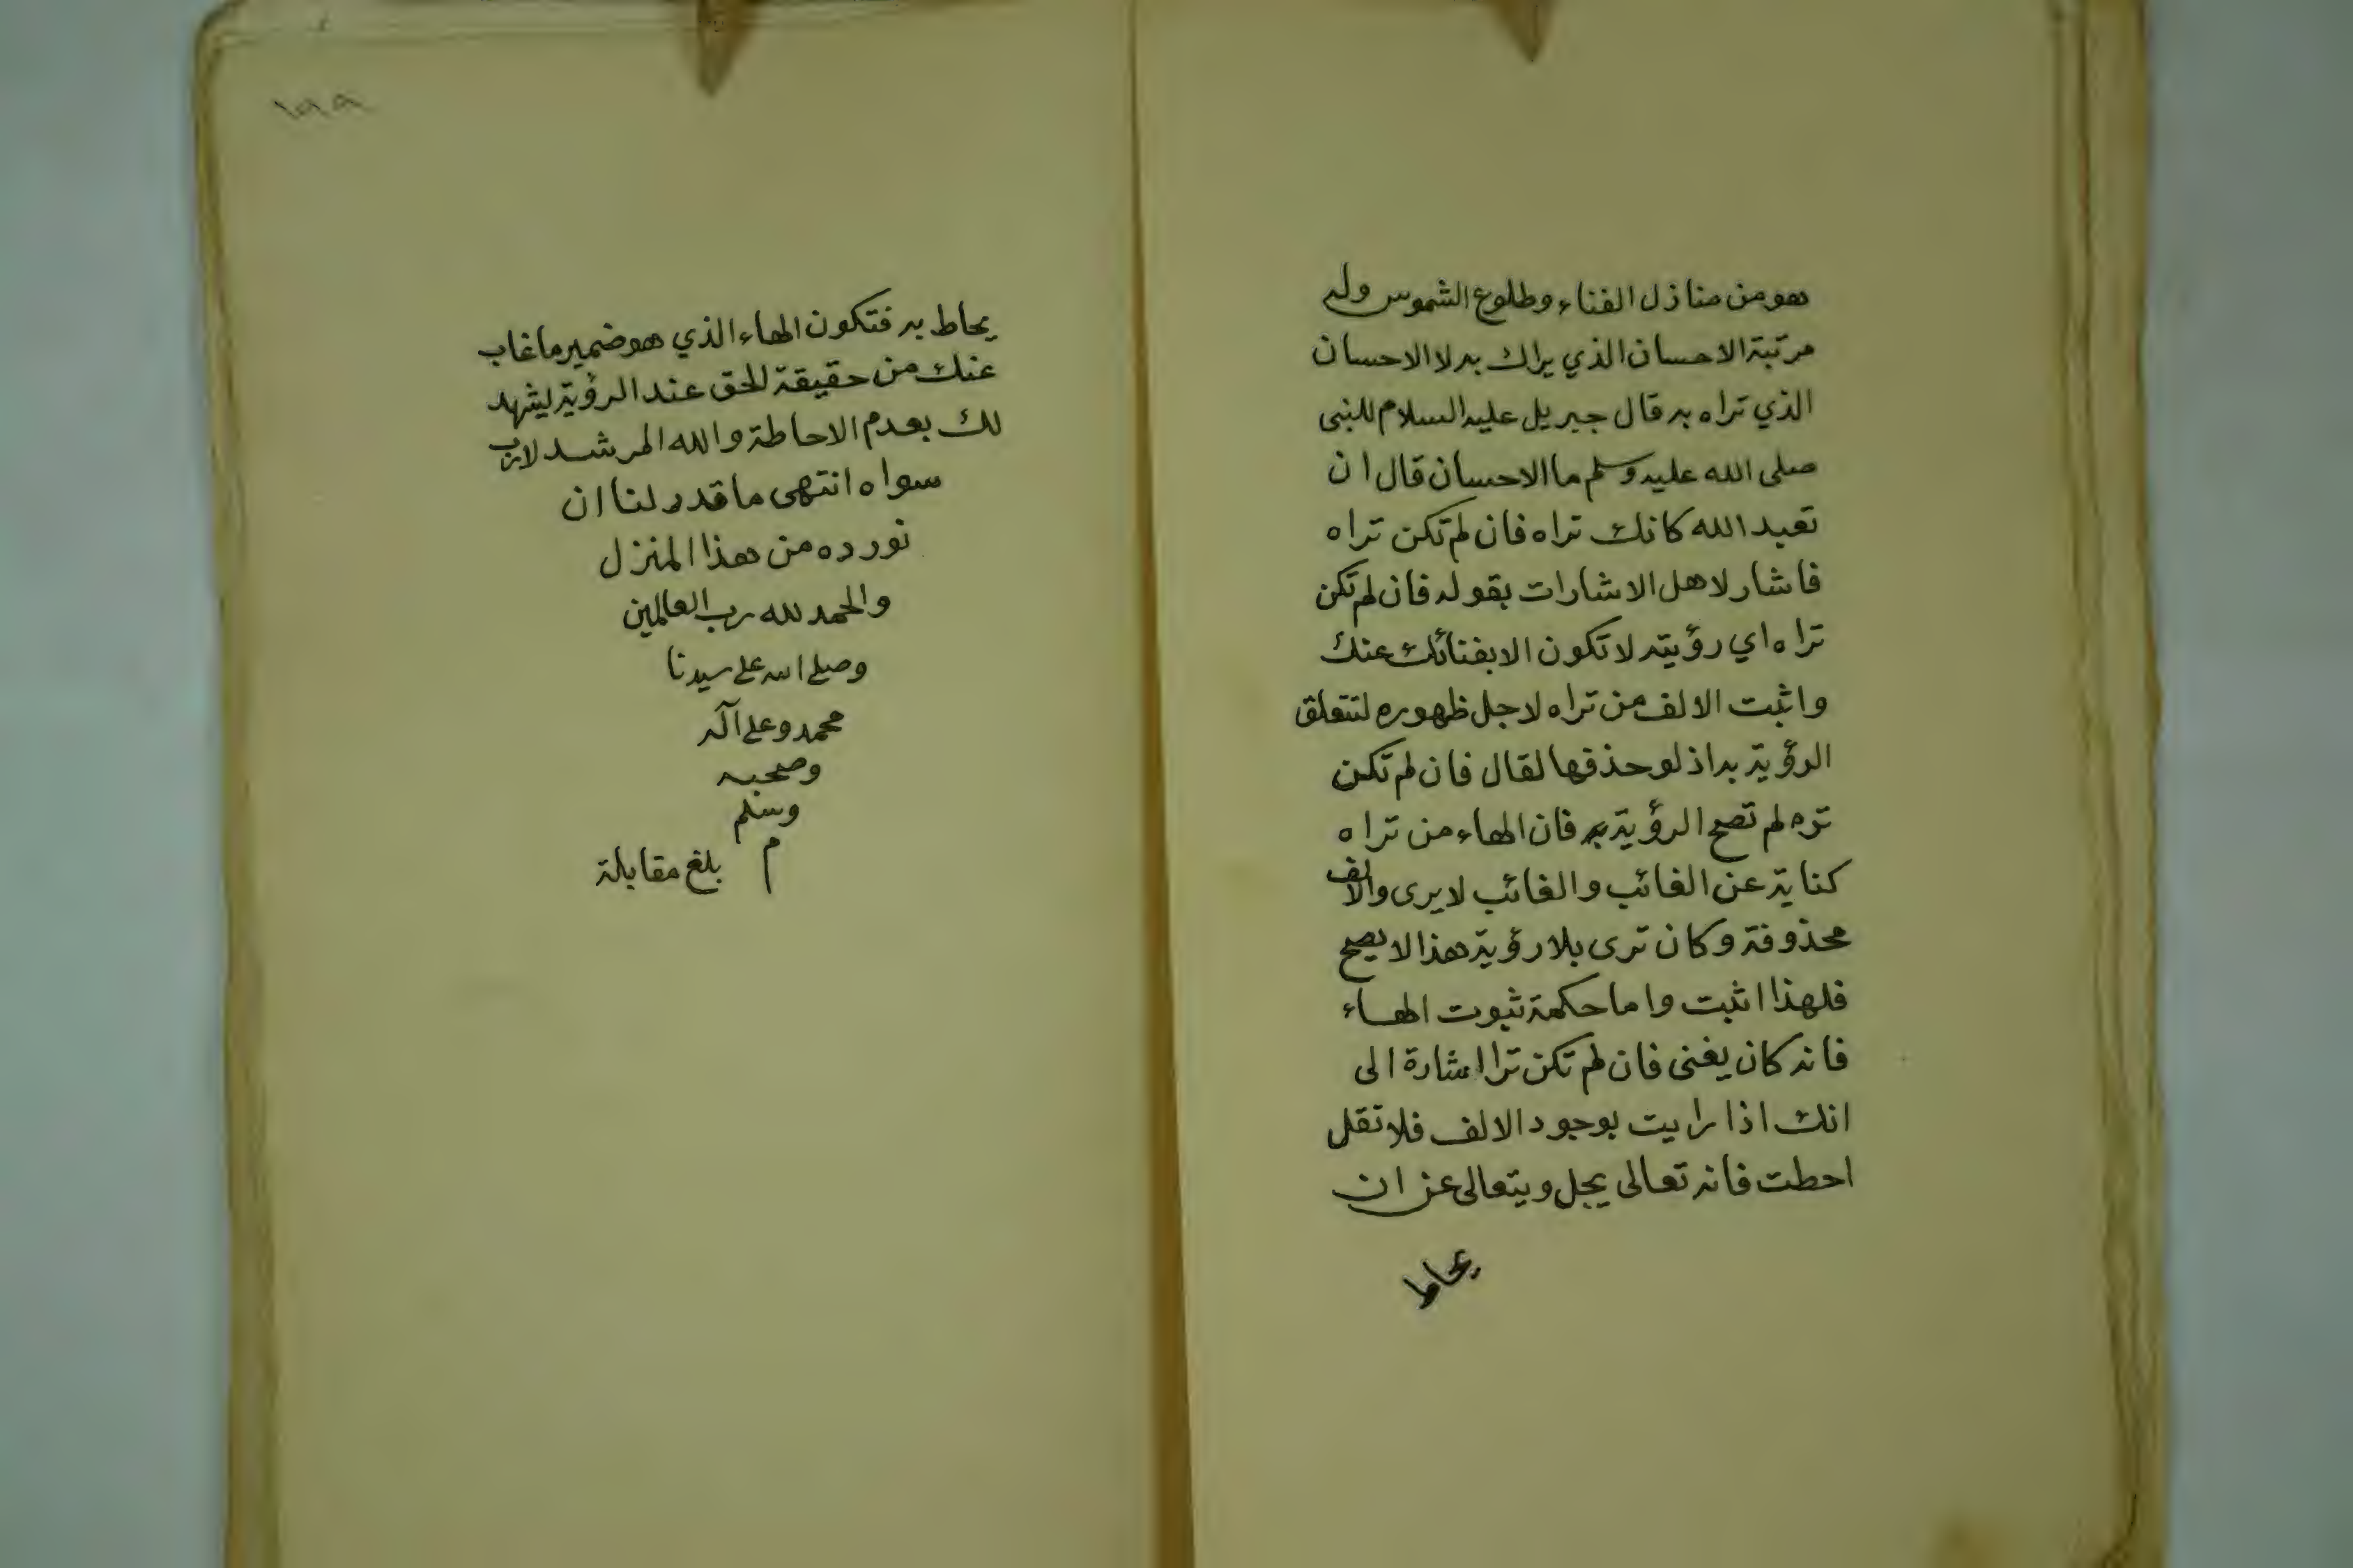 هو من منازل الفناء وطلوع الشموس وله
مرتبة الاحسان الذي يراك به لا الاحسان
الذي تراه به قال جبريل عليه السلام للنبى
صلى الله عليه وسلم ما الاحسان قال ان
تعبد الله كانك تراه فان لم تكن تراه
فاشار لاهل الاشارات بقوله فان لم تكن
تراه اي رؤيته لا تكون الا بفنائك عنك
واثبت الالف من تراه لاجل ظهوره لتتعلق
الرؤية به اذ لو حذفها لقال فان لم تكن
تره لم تصح الرؤية به فان الهاء من تراه
كناية عن الغائب والغائب لا يرى والالف
محذوفة وكان ترى بلا رؤية هذا لا يصح
فلهذا اثبت واما حكمة ثبوت الهاء
فانه كان يغنى فان لم تكن ترا اشارة الى
انك اذا رايت بوجود الالف فلا تقل
احطت فانه تعالى يجل ويتعالى عن ان
يحاط
١٨٨
يحاط به فتكون الهاء الذي هو ضمير ما غاب
عنك من حقيقة الحق عند الرؤية ليشهد
لك بعدم الاحاطة والله المرشد لا رب
سواه انتهى ما قدر لنا ان
نورده من هذا المنزل
والحمد لله رب العالمين
وصلى الله على سيدنا
محمد وعلى آله
وصحبه
وسلم
م بلغ مقابلة